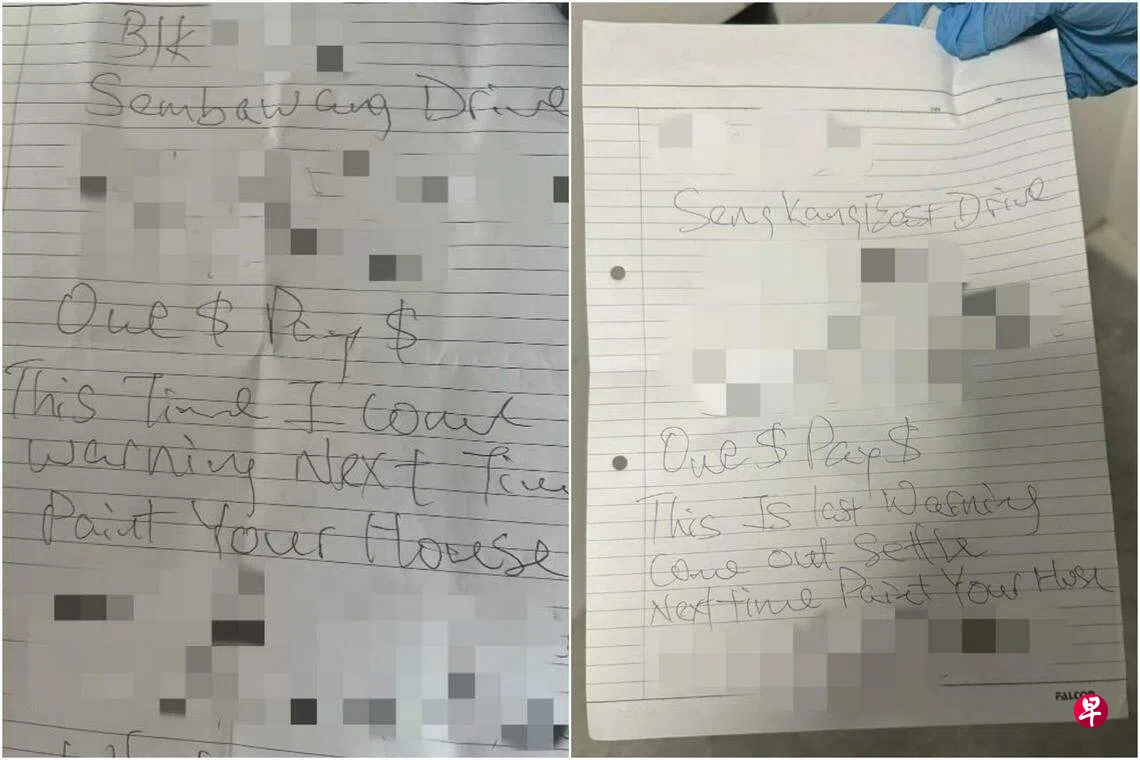 Blk
Sembawang Drive
Owe $ Pay $
This Time I come
Warning Next Time
Paint Your House
SengKang East Drive
Owe $ Pay $
This Is last Warning
Come out Settle
Next time Paint Your Hose
FALCON
早